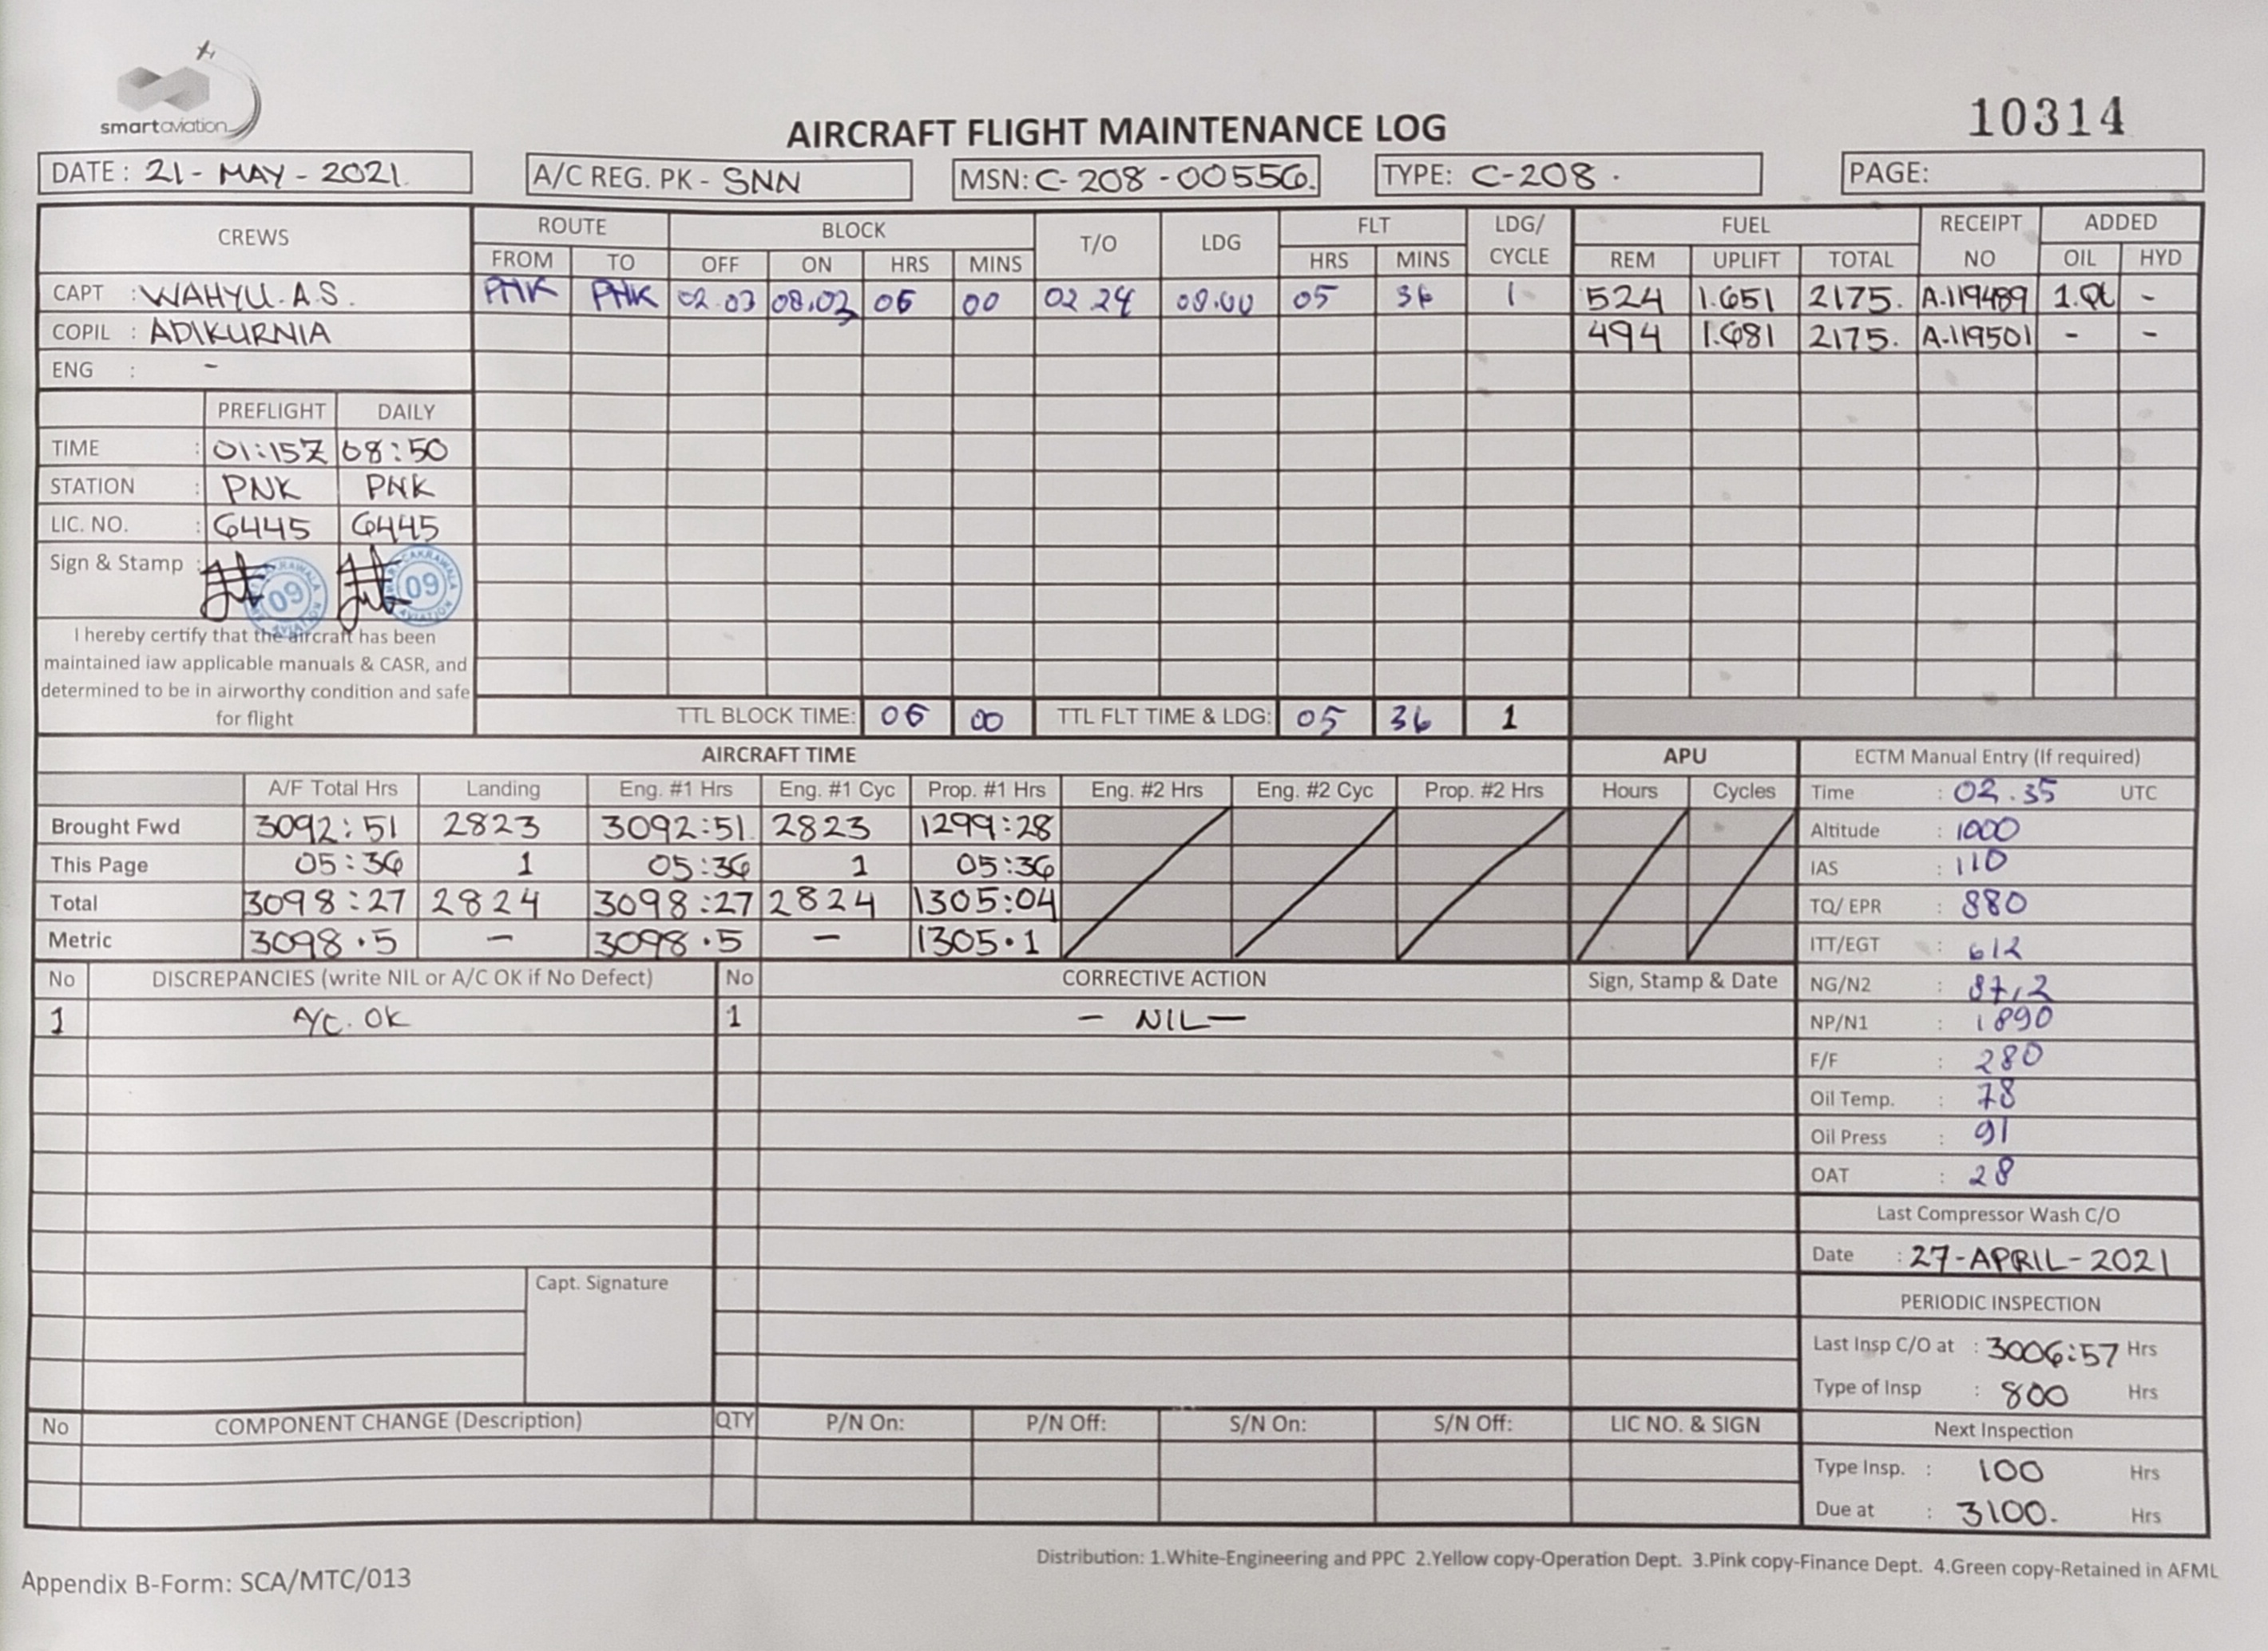 smartaviation
AIRCRAFT FLIGHT MAINTENANCE LOG
10314
DATE : 21 - MAY - 2021.
A/C REG. PK - SNN
MSN: C-208-00556.
TYPE: C-208.
PAGE:
CREWS ROUTE BLOCK T/O LDG FLT LDG/ CYCLE FUEL RECEIPT NO ADDED
FROM TO OFF ON HRS MINS HRS MINS REM UPLIFT TOTAL OIL HYD
CAPT : WAHYU. A.S. PNK PNK 02.03 08.03 06 00 02 24 08.00 05 36 1 524 1.651 2175. A.119489 1.QL -
COPIL : ADIKURNIA 494 1.681 2175. A.119501 - -
ENG : -
PREFLIGHT DAILY
TIME : 01:15Z 08:50
STATION : PNK PNK
LIC. NO. : 6445 6445
Sign & Stamp : 09 09
CAKRAWALA AVIATION
I hereby certify that the aircraft has been
maintained iaw applicable manuals & CASR, and
determined to be in airworthy condition and safe
for flight
TTL BLOCK TIME: 06 00 TTL FLT TIME & LDG: 05 36 1
AIRCRAFT TIME APU
A/F Total Hrs Landing Eng. #1 Hrs Eng. #1 Cyc Prop. #1 Hrs Eng. #2 Hrs Eng. #2 Cyc Prop. #2 Hrs Hours Cycles
Brought Fwd 3092:51 2823 3092:51 2823 1299:28
This Page 05:36 1 05:36 1 05:36
Total 3098:27 2824 3098:27 2824 1305:04
Metric 3098.5 - 3098.5 - 1305.1
ECTM Manual Entry (If required)
Time : 02.35 UTC
Altitude : 1000
IAS : 110
TQ/ EPR : 880
ITT/EGT : 612
NG/N2 : 87,2
NP/N1 : 1890
F/F : 280
Oil Temp. : 78
Oil Press : 91
OAT : 28
Last Compressor Wash C/O
Date : 27-APRIL-2021
PERIODIC INSPECTION
Last Insp C/O at : 3006:57 Hrs
Type of Insp : 800 Hrs
Next Inspection
Type Insp. : 100 Hrs
Due at : 3100. Hrs
No DISCREPANCIES (write NIL or A/C OK if No Defect) No CORRECTIVE ACTION Sign, Stamp & Date
1 A/C. OK 1 - NIL -
Capt. Signature
No COMPONENT CHANGE (Description) QTY P/N On: P/N Off: S/N On: S/N Off: LIC NO. & SIGN
Distribution: 1.White-Engineering and PPC 2.Yellow copy-Operation Dept. 3.Pink copy-Finance Dept. 4.Green copy-Retained in AFML
Appendix B-Form: SCA/MTC/013